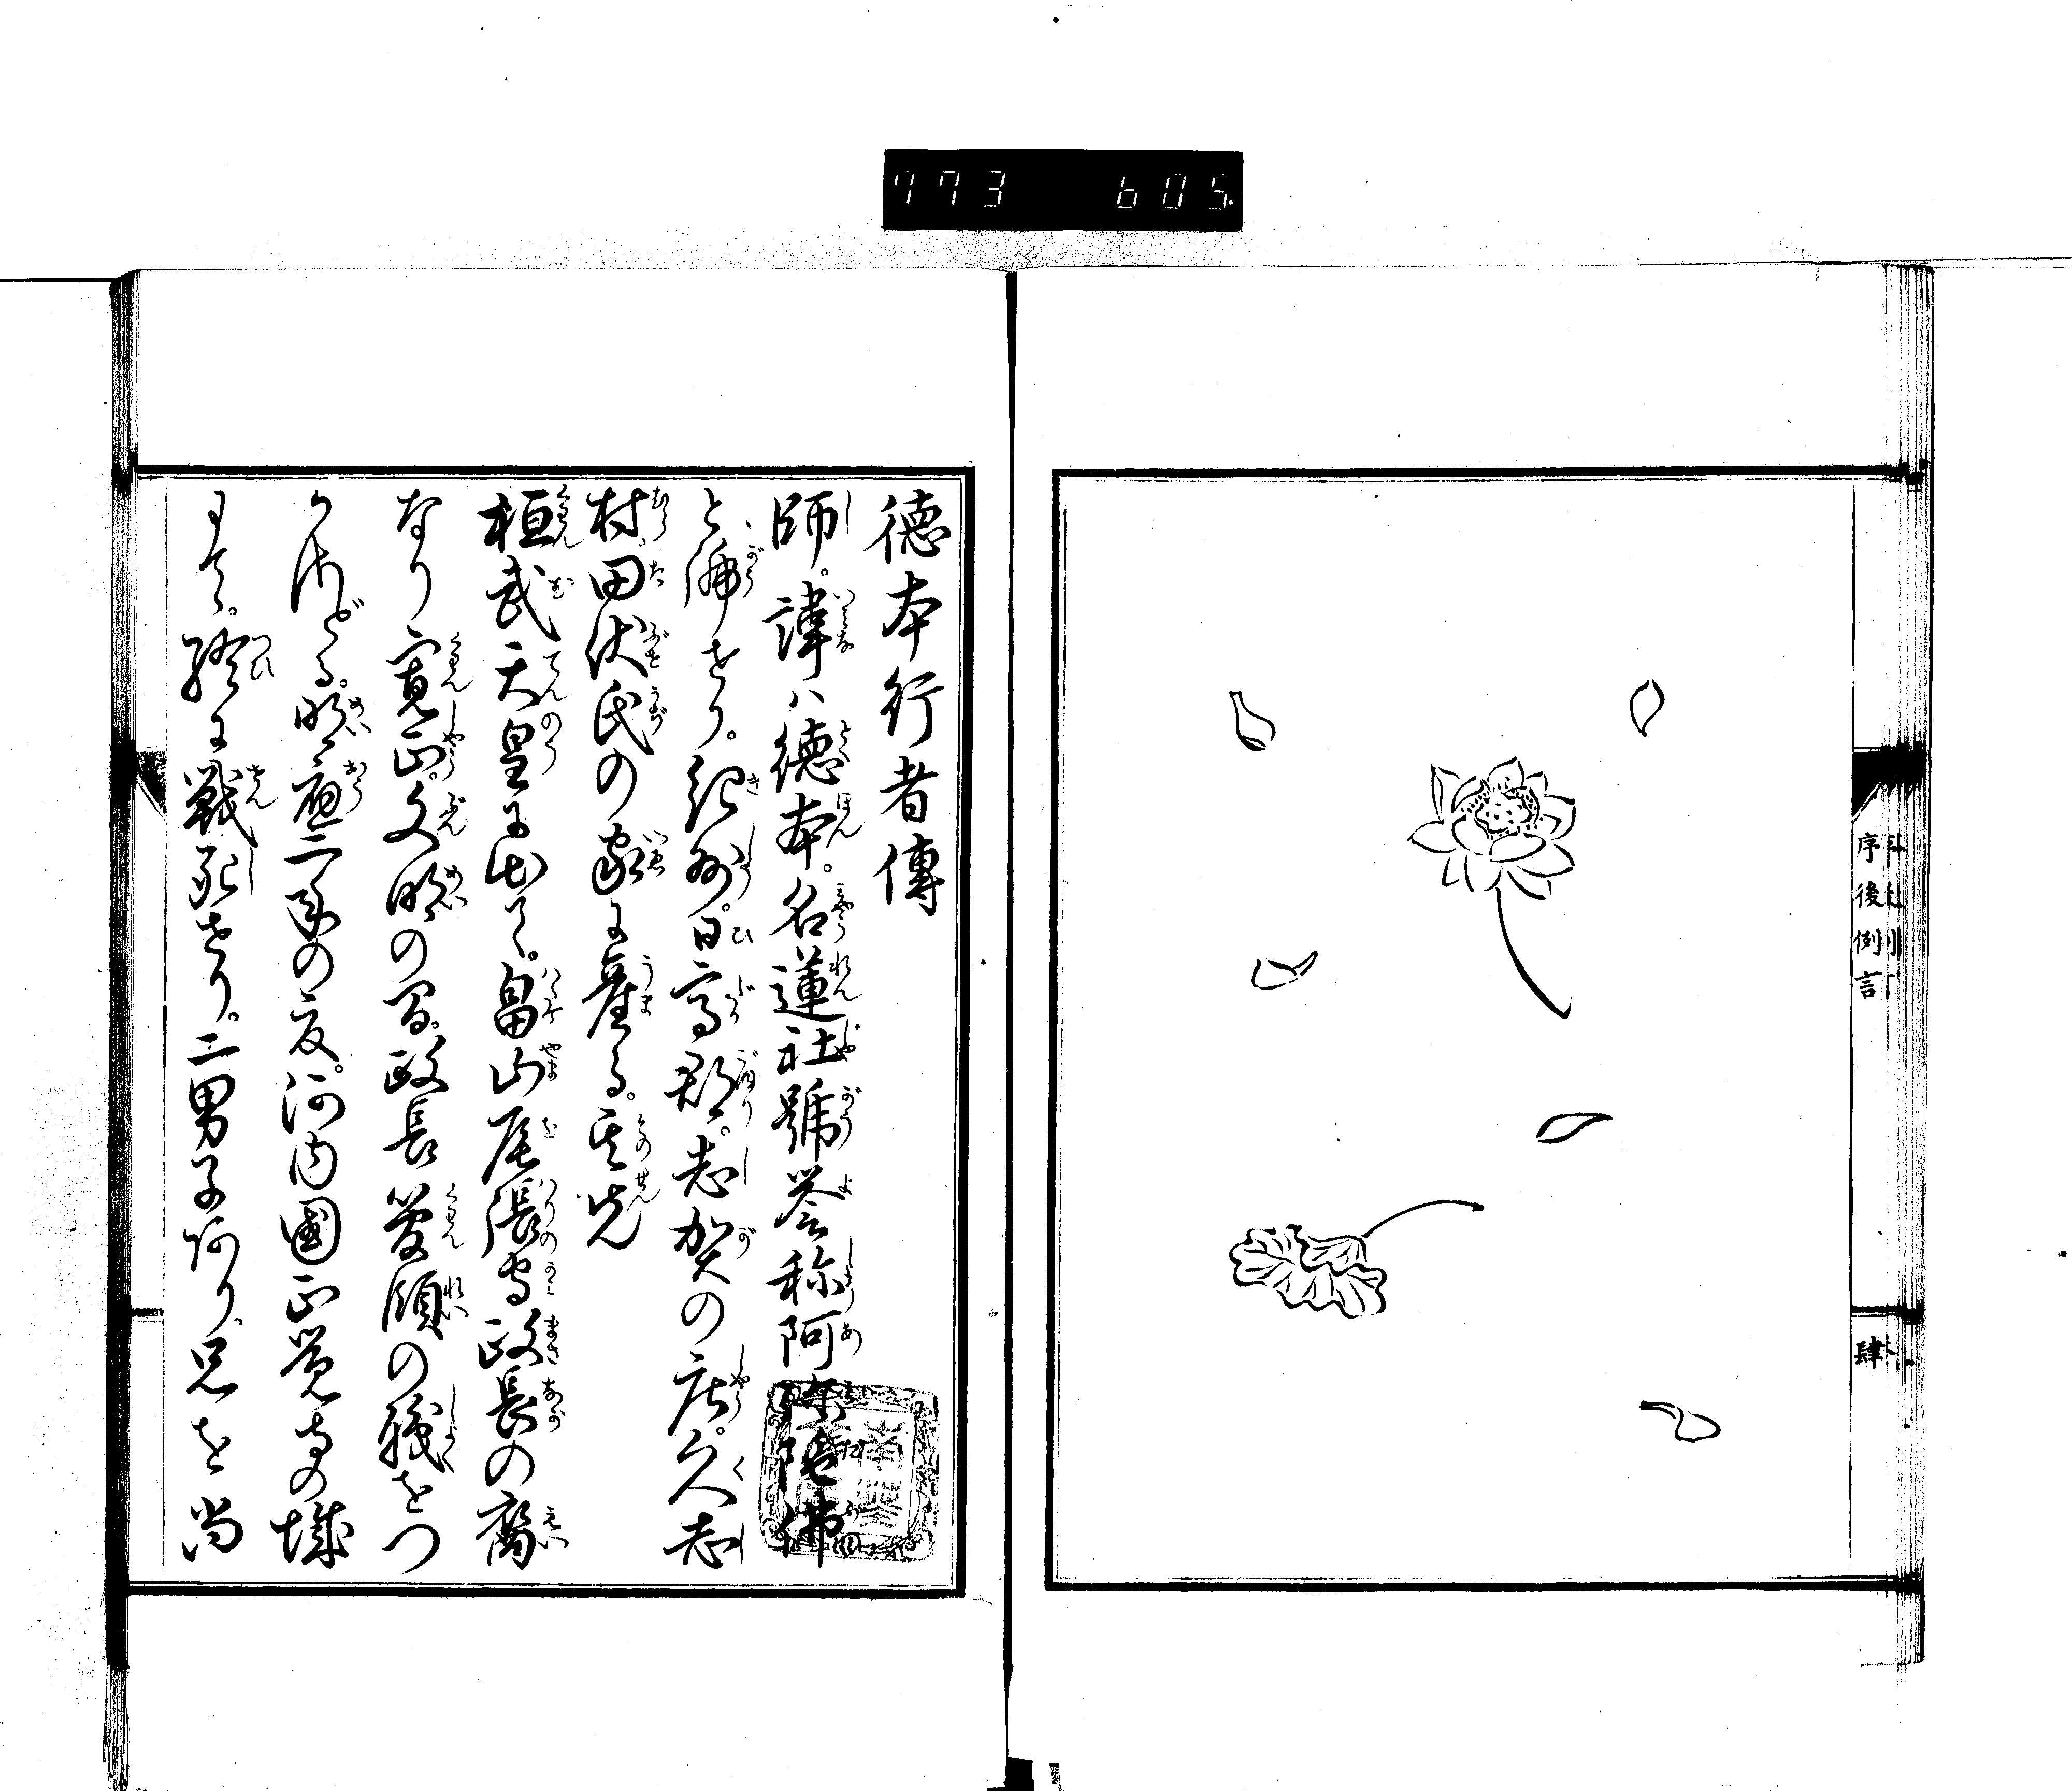 773 605
序後例言
肆
徳本行者傳
師。諱ハ徳本。名蓮社號誉称阿弥陀佛
と、號せり。紀州。日高郡。志賀の庄。久志
村。田伏氏の家に産る。其先
桓武天皇に出て。畠山尾張守政長の裔
なり寛正。文明の間。政長管領の職をつ
かさどる。明應二年の夏。河内國正覚寺の城
にて。終に戦死せり。二男子阿り。兄を尚